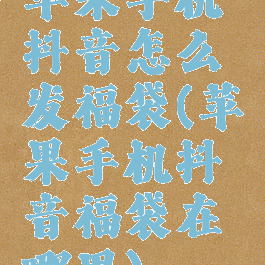 苹果手机
抖音怎么
发福袋(苹
果手机抖
音福袋在
哪里)